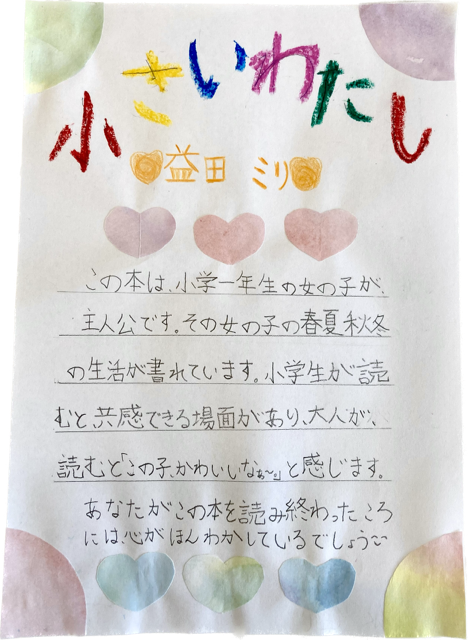 小さいわたし
益田 ミリ
この本は、小学一年生の女の子が、
主人公です。その女の子の春夏秋冬
の生活が書れています。小学生が読
むと共感できる場面があり、大人が、
読むと「この子、かわいいなぁ〜。」と感じます。
あなたがこの本を読み終わったころ
には、心がほんわかしているでしょう〜